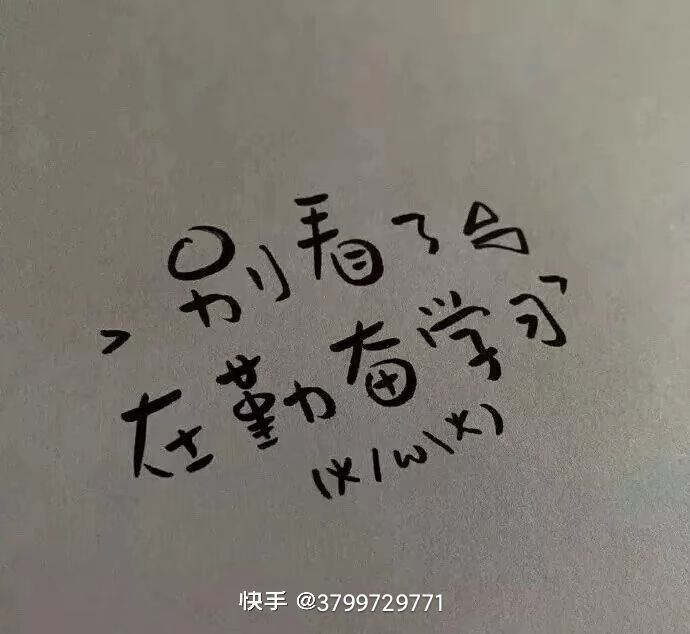 别看了
在勤奋学习
(*/ω\*)
快手 @3799729771